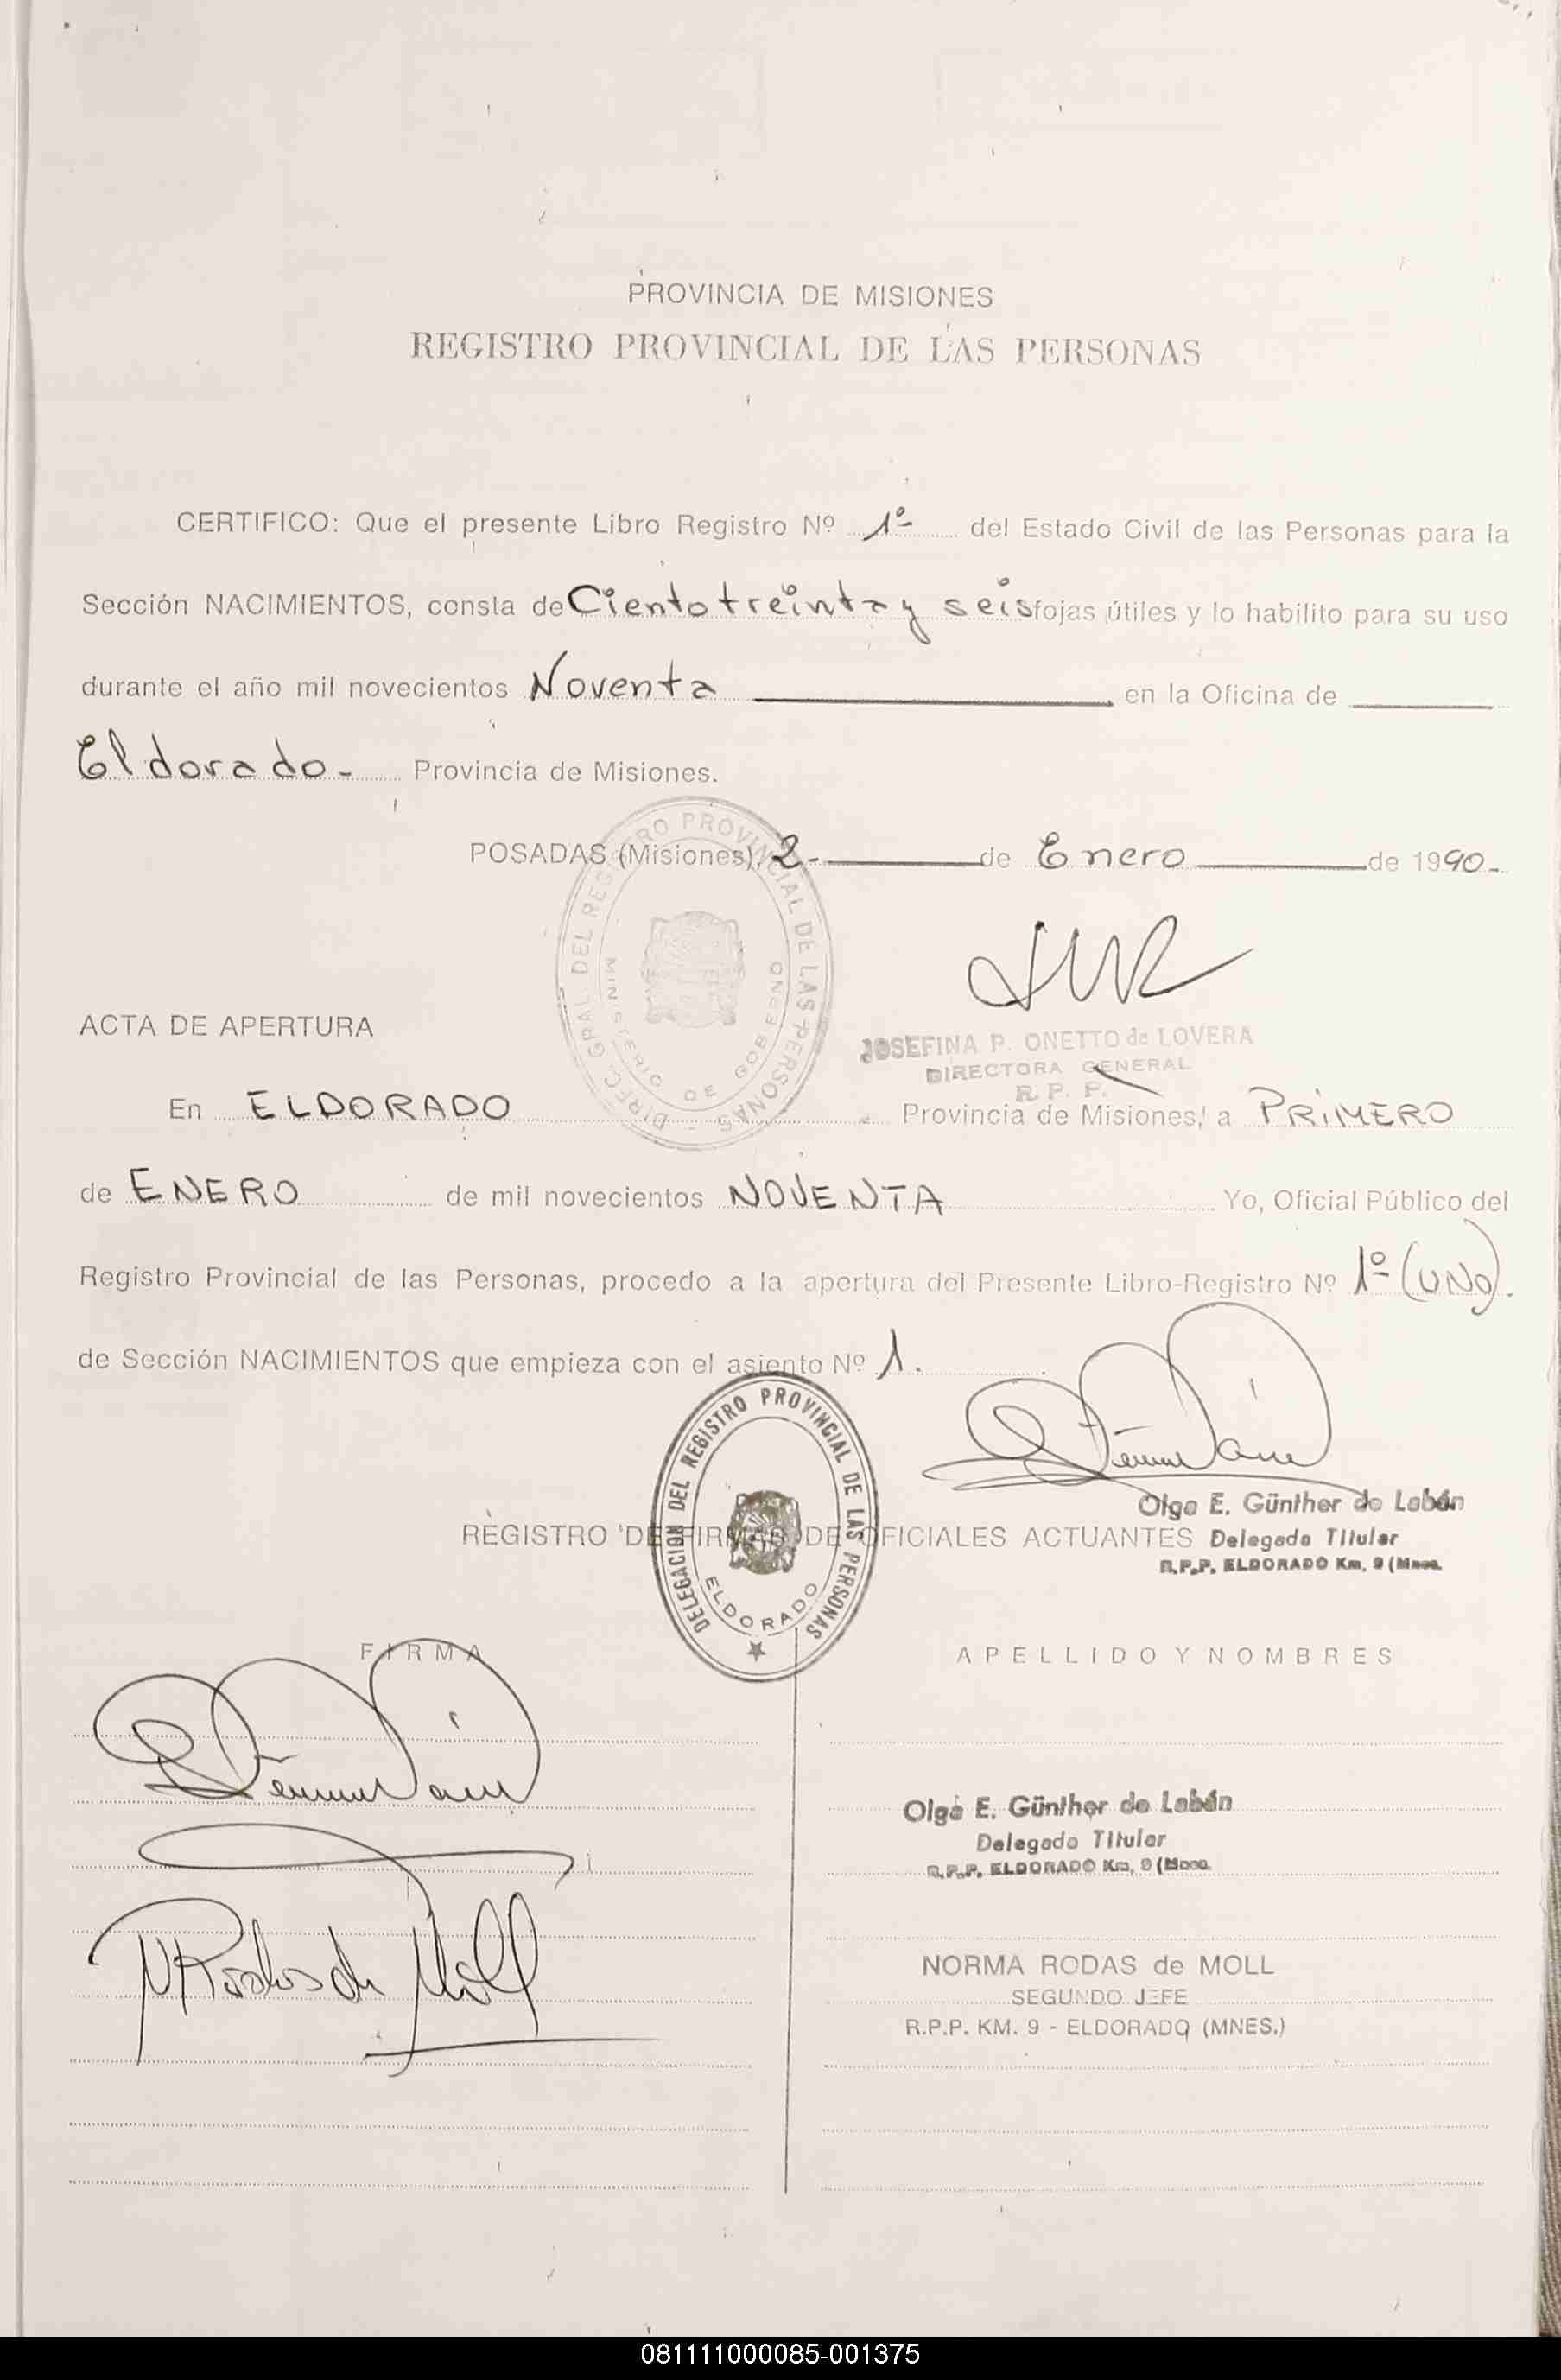 PROVINCIA DE MISIONES
REGISTRO PROVINCIAL DE LAS PERSONAS
CERTIFICO: Que el presente Libro Registro Nº 1º del Estado Civil de las Personas para la
Sección NACIMIENTOS, consta de Ciento treinta y seis fojas útiles y lo habilito para su uso
durante el año mil novecientos Noventa en la Oficina de
Eldorado- Provincia de Misiones.
POSADAS (Misiones), 2- de Enero de 1990-
DIREC. GRAL. DEL REGISTRO PROVINCIAL DE LAS PERSONAS
MINISTERIO DE GOBERNO
JOSEFINA P. ONETTO de LOVERA
DIRECTORA GENERAL
R. P. P.
ACTA DE APERTURA
En ELDORADO Provincia de Misiones, a PRIMERO
de ENERO de mil novecientos NOVENTA Yo, Oficial Público del
Registro Provincial de las Personas, procedo a la apertura del Presente Libro-Registro Nº 1º (UNO).
de Sección NACIMIENTOS que empieza con el asiento Nº 1.
DELEGACION DEL REGISTRO PROVINCIAL DE LAS PERSONAS
ELDORADO
Olga E. Günther de Labán
Delegada Titular
R.P.P. ELDORADO Km. 9 (Mnes.
REGISTRO DE FIRMAS DE OFICIALES ACTUANTES
FIRMA APELLIDO Y NOMBRES
Olga E. Günther de Labán
Delegada Titular
R.P.P. ELDORADO Km. 9 (Mnes.
NRodas de Moll
NORMA RODAS de MOLL
SEGUNDO JEFE
R.P.P. KM. 9 - ELDORADO (MNES.)
081111000085-001375